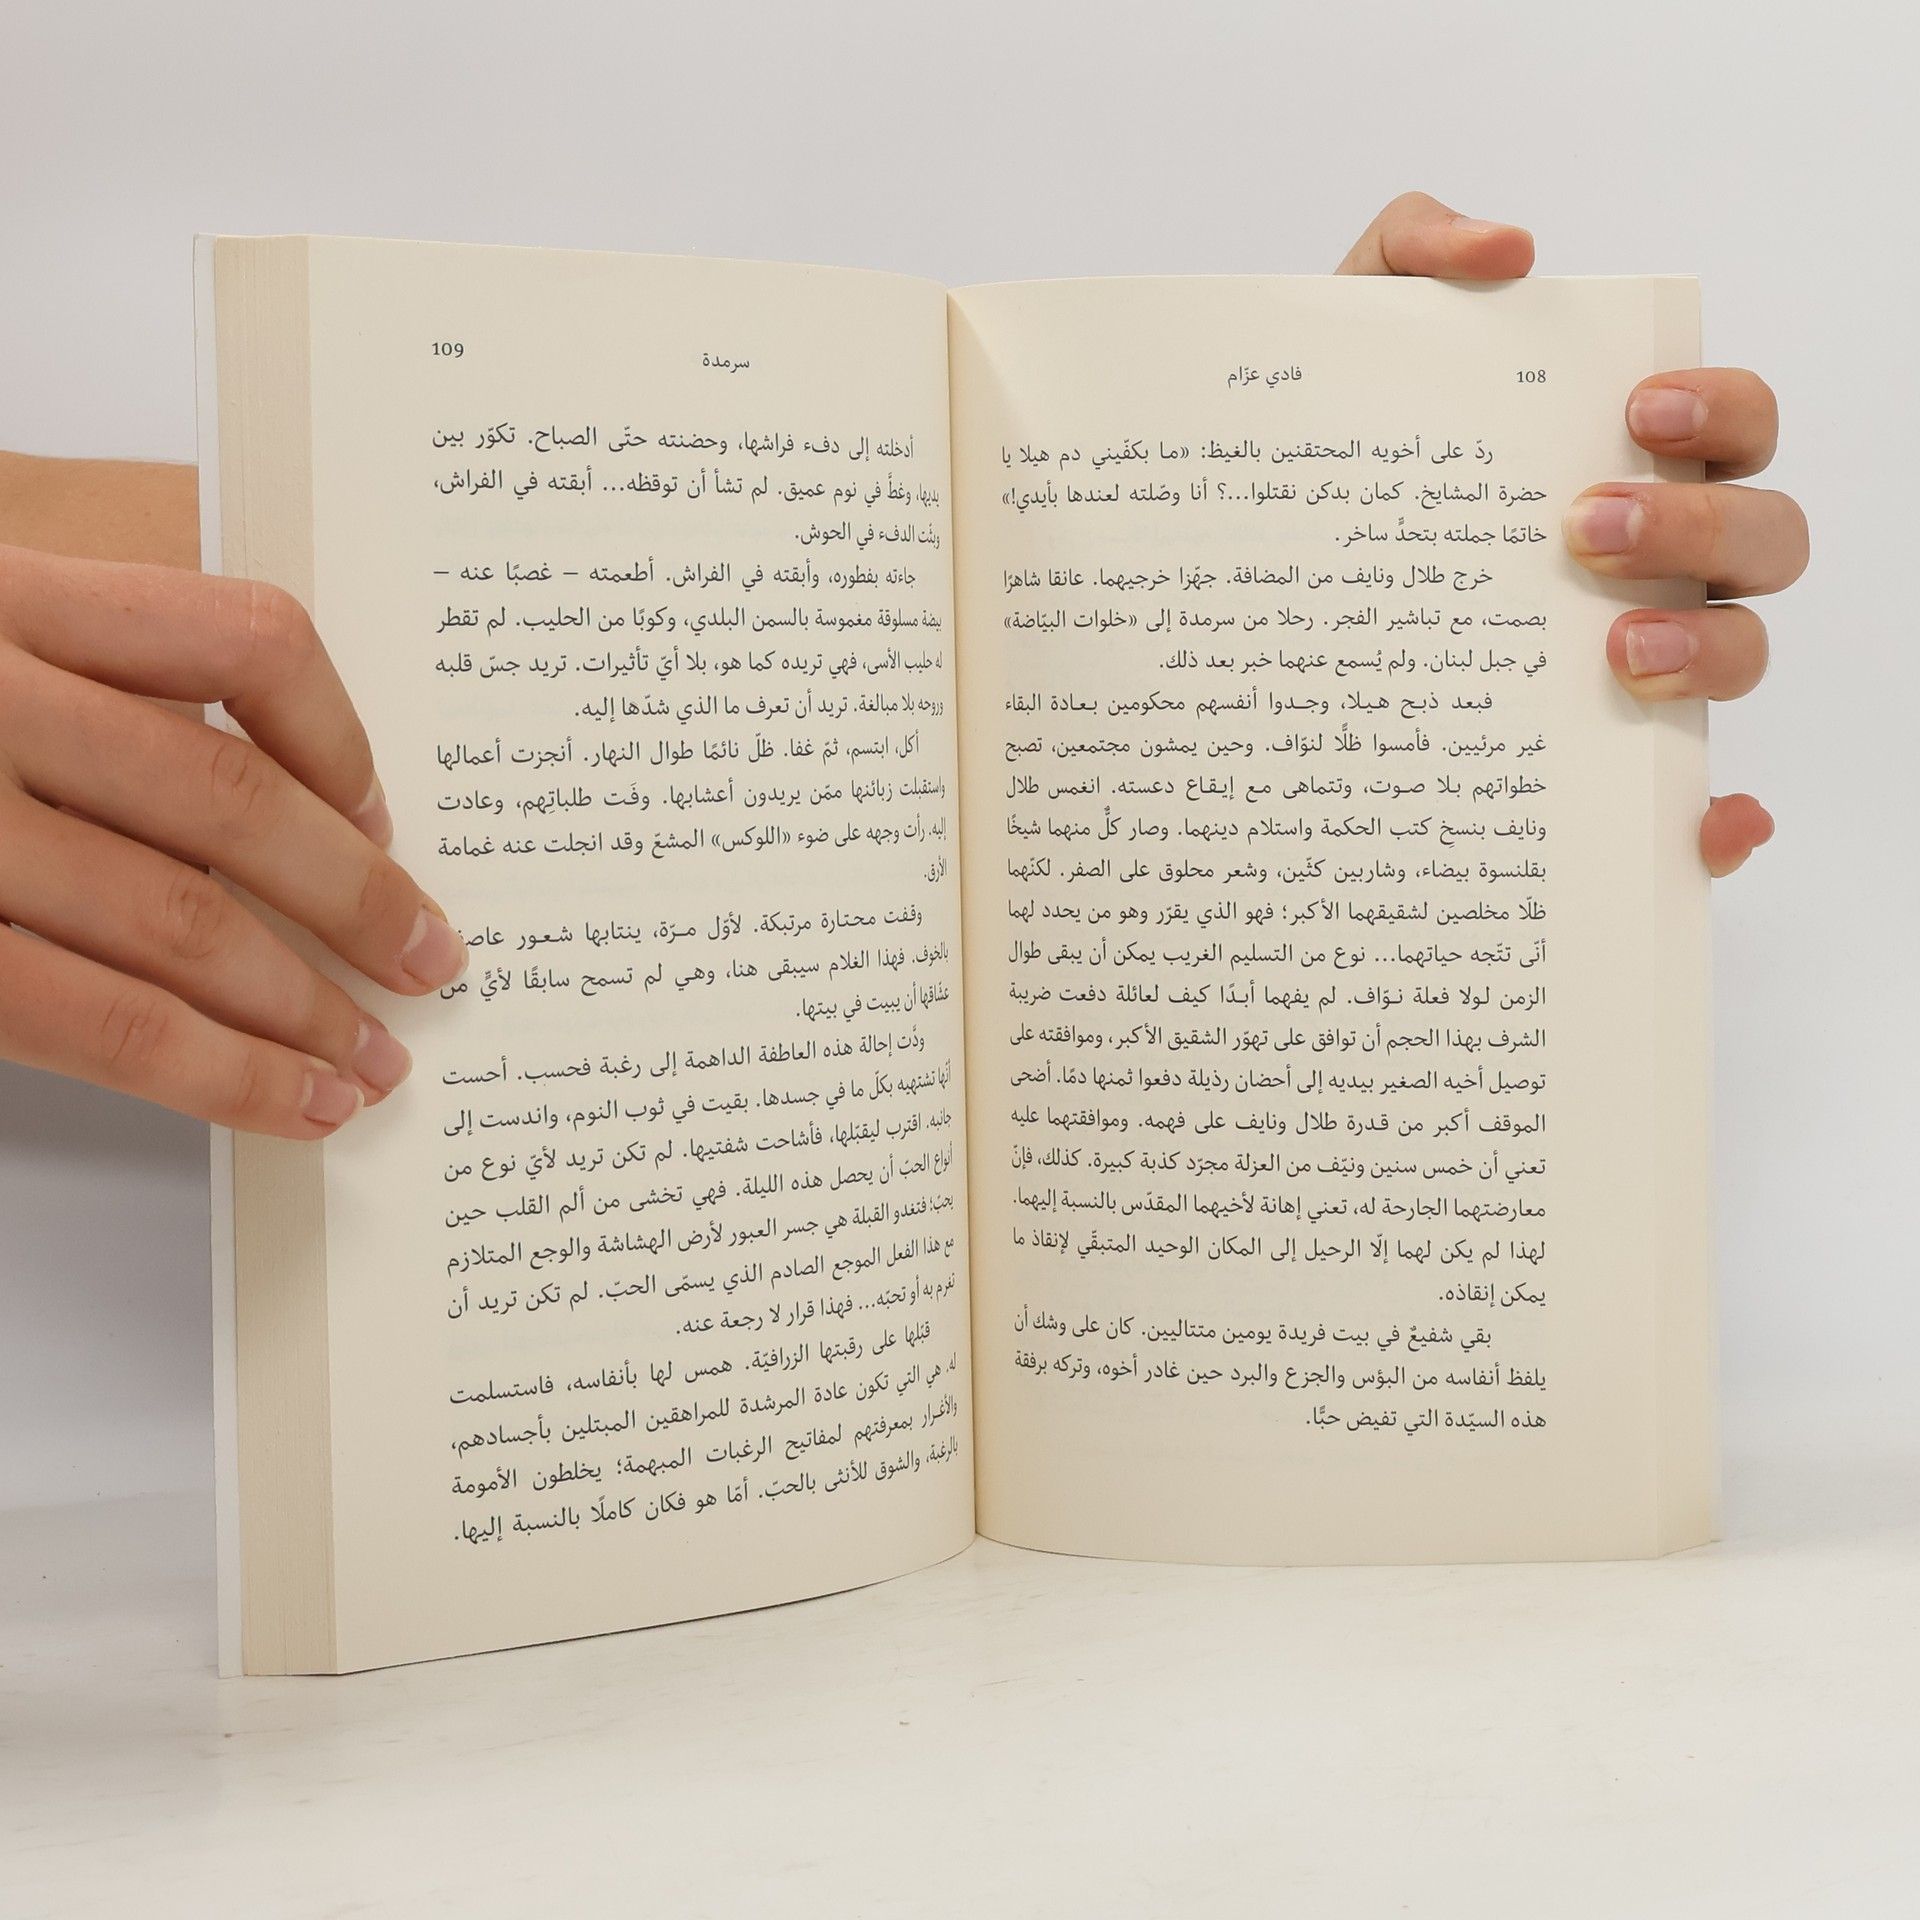 108
فادي عزّام
ردّ على أخويه المحتقنين بالغيظ: «ما بكفّيني دم هيلا يا
حضرة المشايخ. كمان بدكن نقتلوا...؟ أنا وصّلته لعندها بأيدي!»
خاتمًا جملته بتحدٍّ ساخر.
خرج طلال ونايف من المضافة. جهّزا خرجيهما. عانقا شاهرًا
بصمت، مع تباشير الفجر. رحلا من سرمدة إلى «خلوات البيّاضة»
في جبل لبنان. ولم يُسمع عنهما خبر بعد ذلك.
فبعد ذبح هيلا، وجدوا أنفسهم محكومين بعادة البقاء
غير مرئيين. فأمسوا ظلًّا لنوّاف. وحين يمشون مجتمعين، تصبح
خطواتهم بلا صوت، وتتماهى مع إيقاع دعسته. انغمس طلال
ونايف بنسخ كتب الحكمة واستلام دينهما. وصار كلٌّ منهما شيخًا
بقلنسوة بيضاء، وشاربين كثّين، وشعر محلوق على الصفر. لكنّهما
ظلّا مخلصين لشقيقهما الأكبر؛ فهو الذي يقرّر وهو من يحدد لهما
أنّى تتّجه حياتهما... نوع من التسليم الغريب يمكن أن يبقى طوال
الزمن لولا فعلة نوّاف. لم يفهما أبدًا كيف لعائلة دفعت ضريبة
الشرف بهذا الحجم أن توافق على تهوّر الشقيق الأكبر، وموافقته على
توصيل أخيه الصغير بيديه إلى أحضان رذيلة دفعوا ثمنها دمًا. أضحى
الموقف أكبر من قدرة طلال ونايف على فهمه. وموافقتهما عليه
تعني أن خمس سنين ونيّف من العزلة مجرّد كذبة كبيرة. كذلك، فإنّ
معارضتهما الجارحة له، تعني إهانة لأخيهما المقدّس بالنسبة إليهما.
لهذا لم يكن لهما إلّا الرحيل إلى المكان الوحيد المتبقّي لإنقاذ ما
يمكن إنقاذه.
بقي شفيعٌ في بيت فريدة يومين متتاليين. كان على وشك أن
يلفظ أنفاسه من البؤس والجزع والبرد حين غادر أخوه، وتركه برفقة
هذه السيّدة التي تفيض حبًّا.
سرمدة
109
أدخلته إلى دفء فراشها، وحضنته حتّى الصباح. تكوّر بين
يديها، وغطَّ في نوم عميق. لم تشأ أن توقظه... أبقته في الفراش،
وبثّت الدفء في الحوش.
جاءته بفطوره، وأبقته في الفراش. أطعمته – غصبًا عنه –
بيضة مسلوقة مغموسة بالسمن البلدي، وكوبًا من الحليب. لم تقطر
له حليب الأسى، فهي تريده كما هو، بلا أيّ تأثيرات. تريد جسّ قلبه
وروحه بلا مبالغة. تريد أن تعرف ما الذي شدّها إليه.
أكل، ابتسم، ثمّ غفا. ظلّ نائمًا طوال النهار. أنجزت أعمالها
واستقبلت زبائنها ممّن يريدون أعشابها. وفَت طلباتِهم، وعادت
إليه. رأت وجهه على ضوء «اللوكس» المشعّ وقد انجلت عنه غمامة
الأرق.
وقفت محتارة مرتبكة. لأوّل مرّة، ينتابها شعور
بالخوف. فهذا الغلام سيبقى هنا، وهي لم تسمح سابقًا لأيٍّ من
عشّاقها أن يبيت في بيتها.
ودَّت إحالة هذه العاطفة الداهمة إلى رغبة فحسب. أحست
أنّها تشتهيه بكلّ ما في جسدها. بقيت في ثوب النوم، واندست إلى
جانبه. اقترب ليقبّلها، فأشاحت شفتيها. لم تكن تريد لأيّ نوع من
أنواع الحبّ أن يحصل هذه الليلة. فهي تخشى من ألم القلب حين
يحبّ؛ فتغدو القبلة هي جسر العبور لأرض الهشاشة والوجع المتلازم
مع هذا الفعل الموجع الصادم الذي يسمّى الحبّ. لم تكن تريد أن
تغرم به أو تحبّه... فهذا قرار لا رجعة عنه.
قبّلها على رقبتها الزرافيّة. همس لها بأنفاسه، فاستسلمت
له. هي التي تكون عادة المرشدة للمراهقين المبتلين بأجسادهم،
والأغرار بمعرفتهم لمفاتيح الرغبات المبهمة؛ يخلطون الأمومة
بالرغبة، والشوق للأنثى بالحبّ. أمّا هو فكان كاملًا بالنسبة إليها.